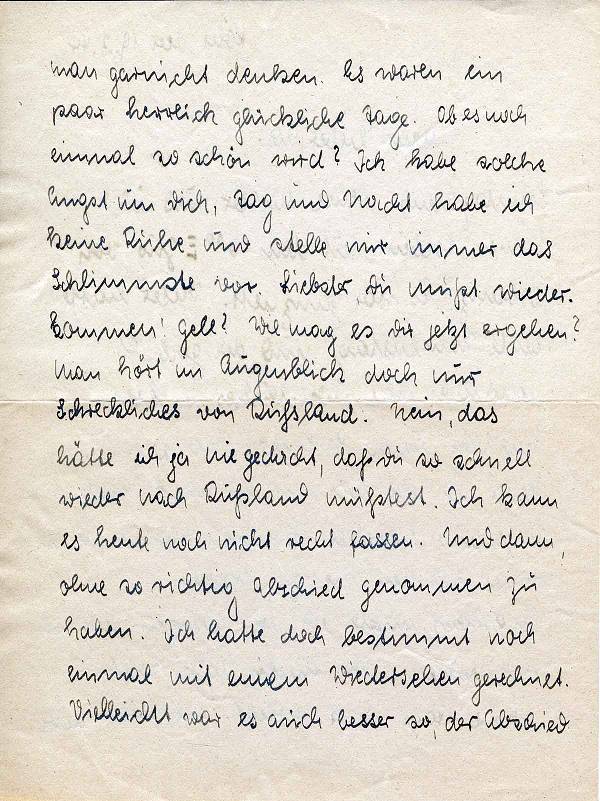 man garnicht denken. Es waren ein
paar herrlich glückliche Tage. Ob es noch
einmal so schön wird? Ich habe solche
Angst um Dich, Tag und Nacht habe ich
keine Ruhe und stelle mir immer das
Schlimmste vor. Liebster Du mußt wieder-
kommen! gell? Wie mag es Dir jetzt ergehen?
Man hört im Augenblick doch nur
Schreckliches von Rußland. Nein, das
hätte ich ja nie gedacht, daß Du so schnell
wieder nach Rußland müßtest. Ich kann
es heute noch nicht recht fassen. Und dann,
ohne so richtig Abschied genommen zu
haben. Ich hatte doch bestimmt noch
einmal mit einem Wiedersehen gerechnet.
Vielleicht war es auch besser so, der Abschied